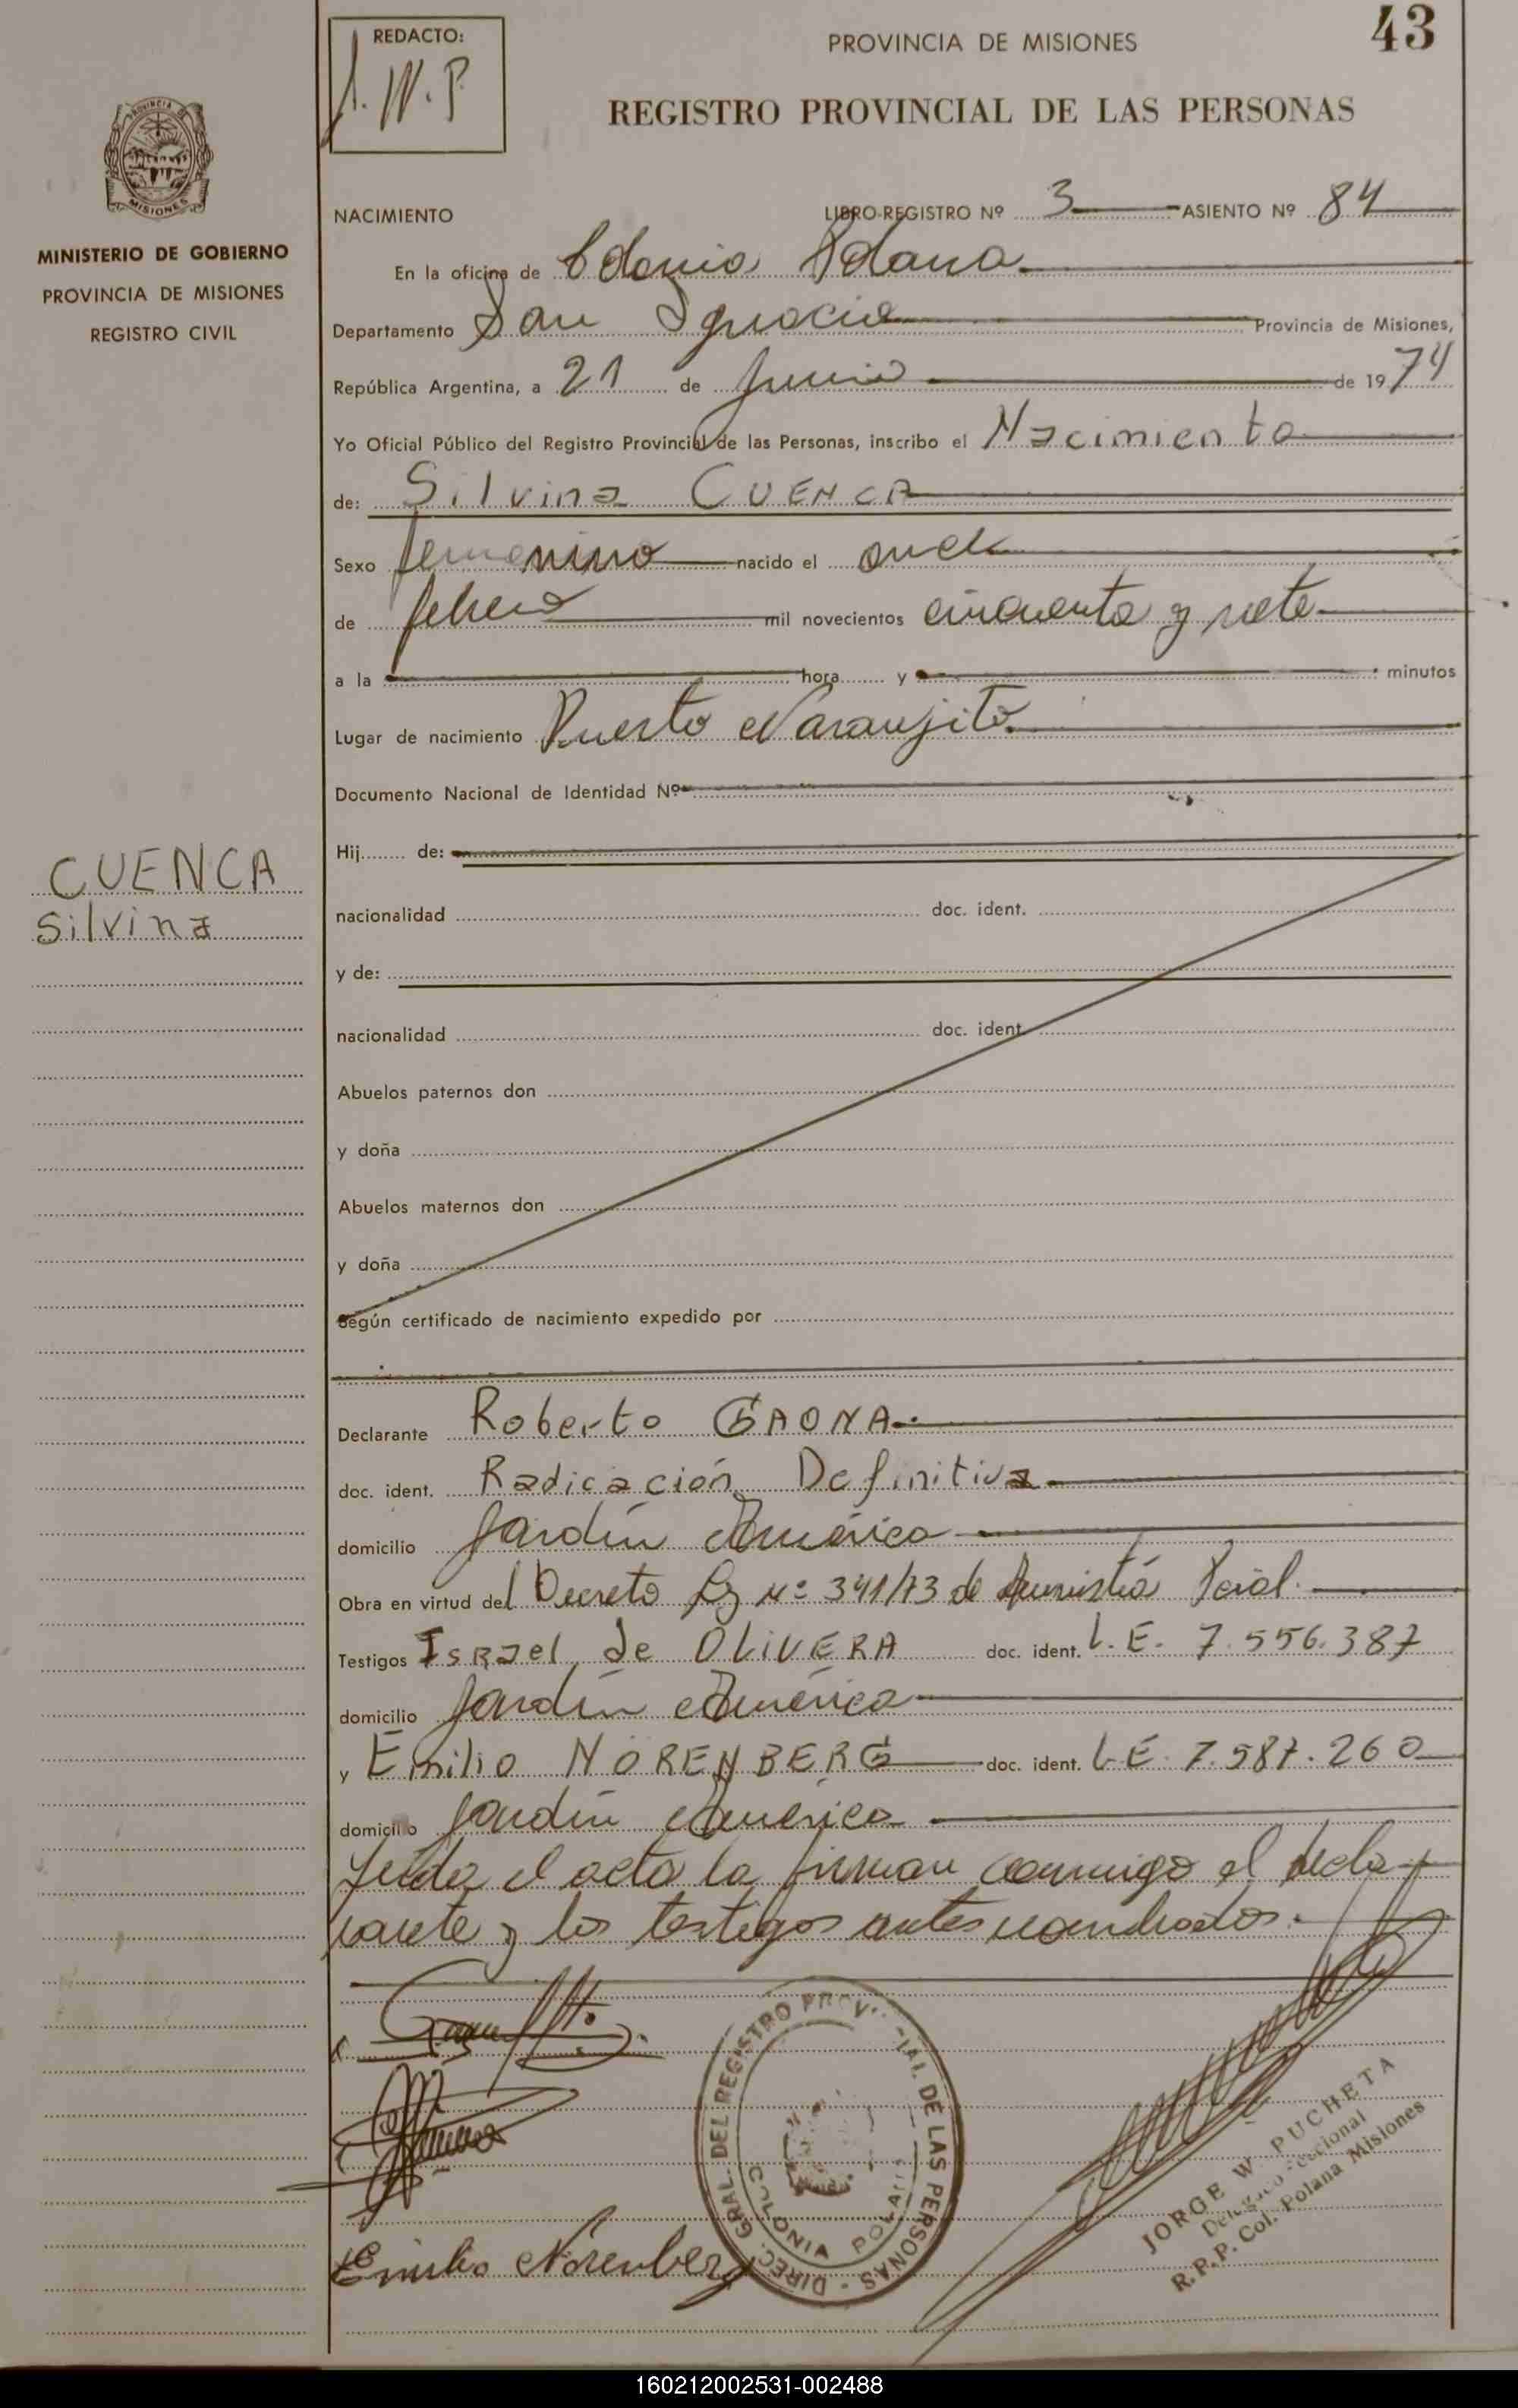 43
REDACTO:
J. W. P.
PROVINCIA DE MISIONES
REGISTRO PROVINCIAL DE LAS PERSONAS
PROVINCIA
MISIONES
MINISTERIO DE GOBIERNO
PROVINCIA DE MISIONES
REGISTRO CIVIL
CUENCA
Silvina
NACIMIENTO LIBRO-REGISTRO Nº 3 ASIENTO Nº 84
En la oficina de Colonia Polana
Departamento San Ignacio Provincia de Misiones,
República Argentina, a 21 de Junio de 1974
Yo Oficial Público del Registro Provincial de las Personas, inscribo el Nacimiento
de: Silvina CUENCA
Sexo femenino nacido el once
de febrero mil novecientos cincuenta y siete
a la hora y minutos
Lugar de nacimiento Puerto Naranjito
Documento Nacional de Identidad Nº
Hij de:
nacionalidad doc. ident.
y de:
nacionalidad doc. ident.
Abuelos paternos don
y doña
Abuelos maternos don
y doña
Según certificado de nacimiento expedido por
Declarante Roberto GAONA
doc. ident. Radicación Definitiva
domicilio Jardín América
Obra en virtud del Decreto Ley Nº 341/73 de Amnistía
Testigos Israel de OLIVERA doc. ident. L.E. 7.556.387
domicilio Jardín América
y Emilio NORENBERG doc. ident. L.E. 7.587.260
domicilio Jardín América
Leída el acta la firman conmigo el decla-
rante y los testigos antes nombrados.
Emilio Norenberg
DIREC. GRAL. DEL REGISTRO PROV. IAL DE LAS PERSONAS -
COLONIA POLANA
JORGE W. PUCHETA
Delegado Seccional
R.P.P. Col. Polana Misiones
160212002531-002488